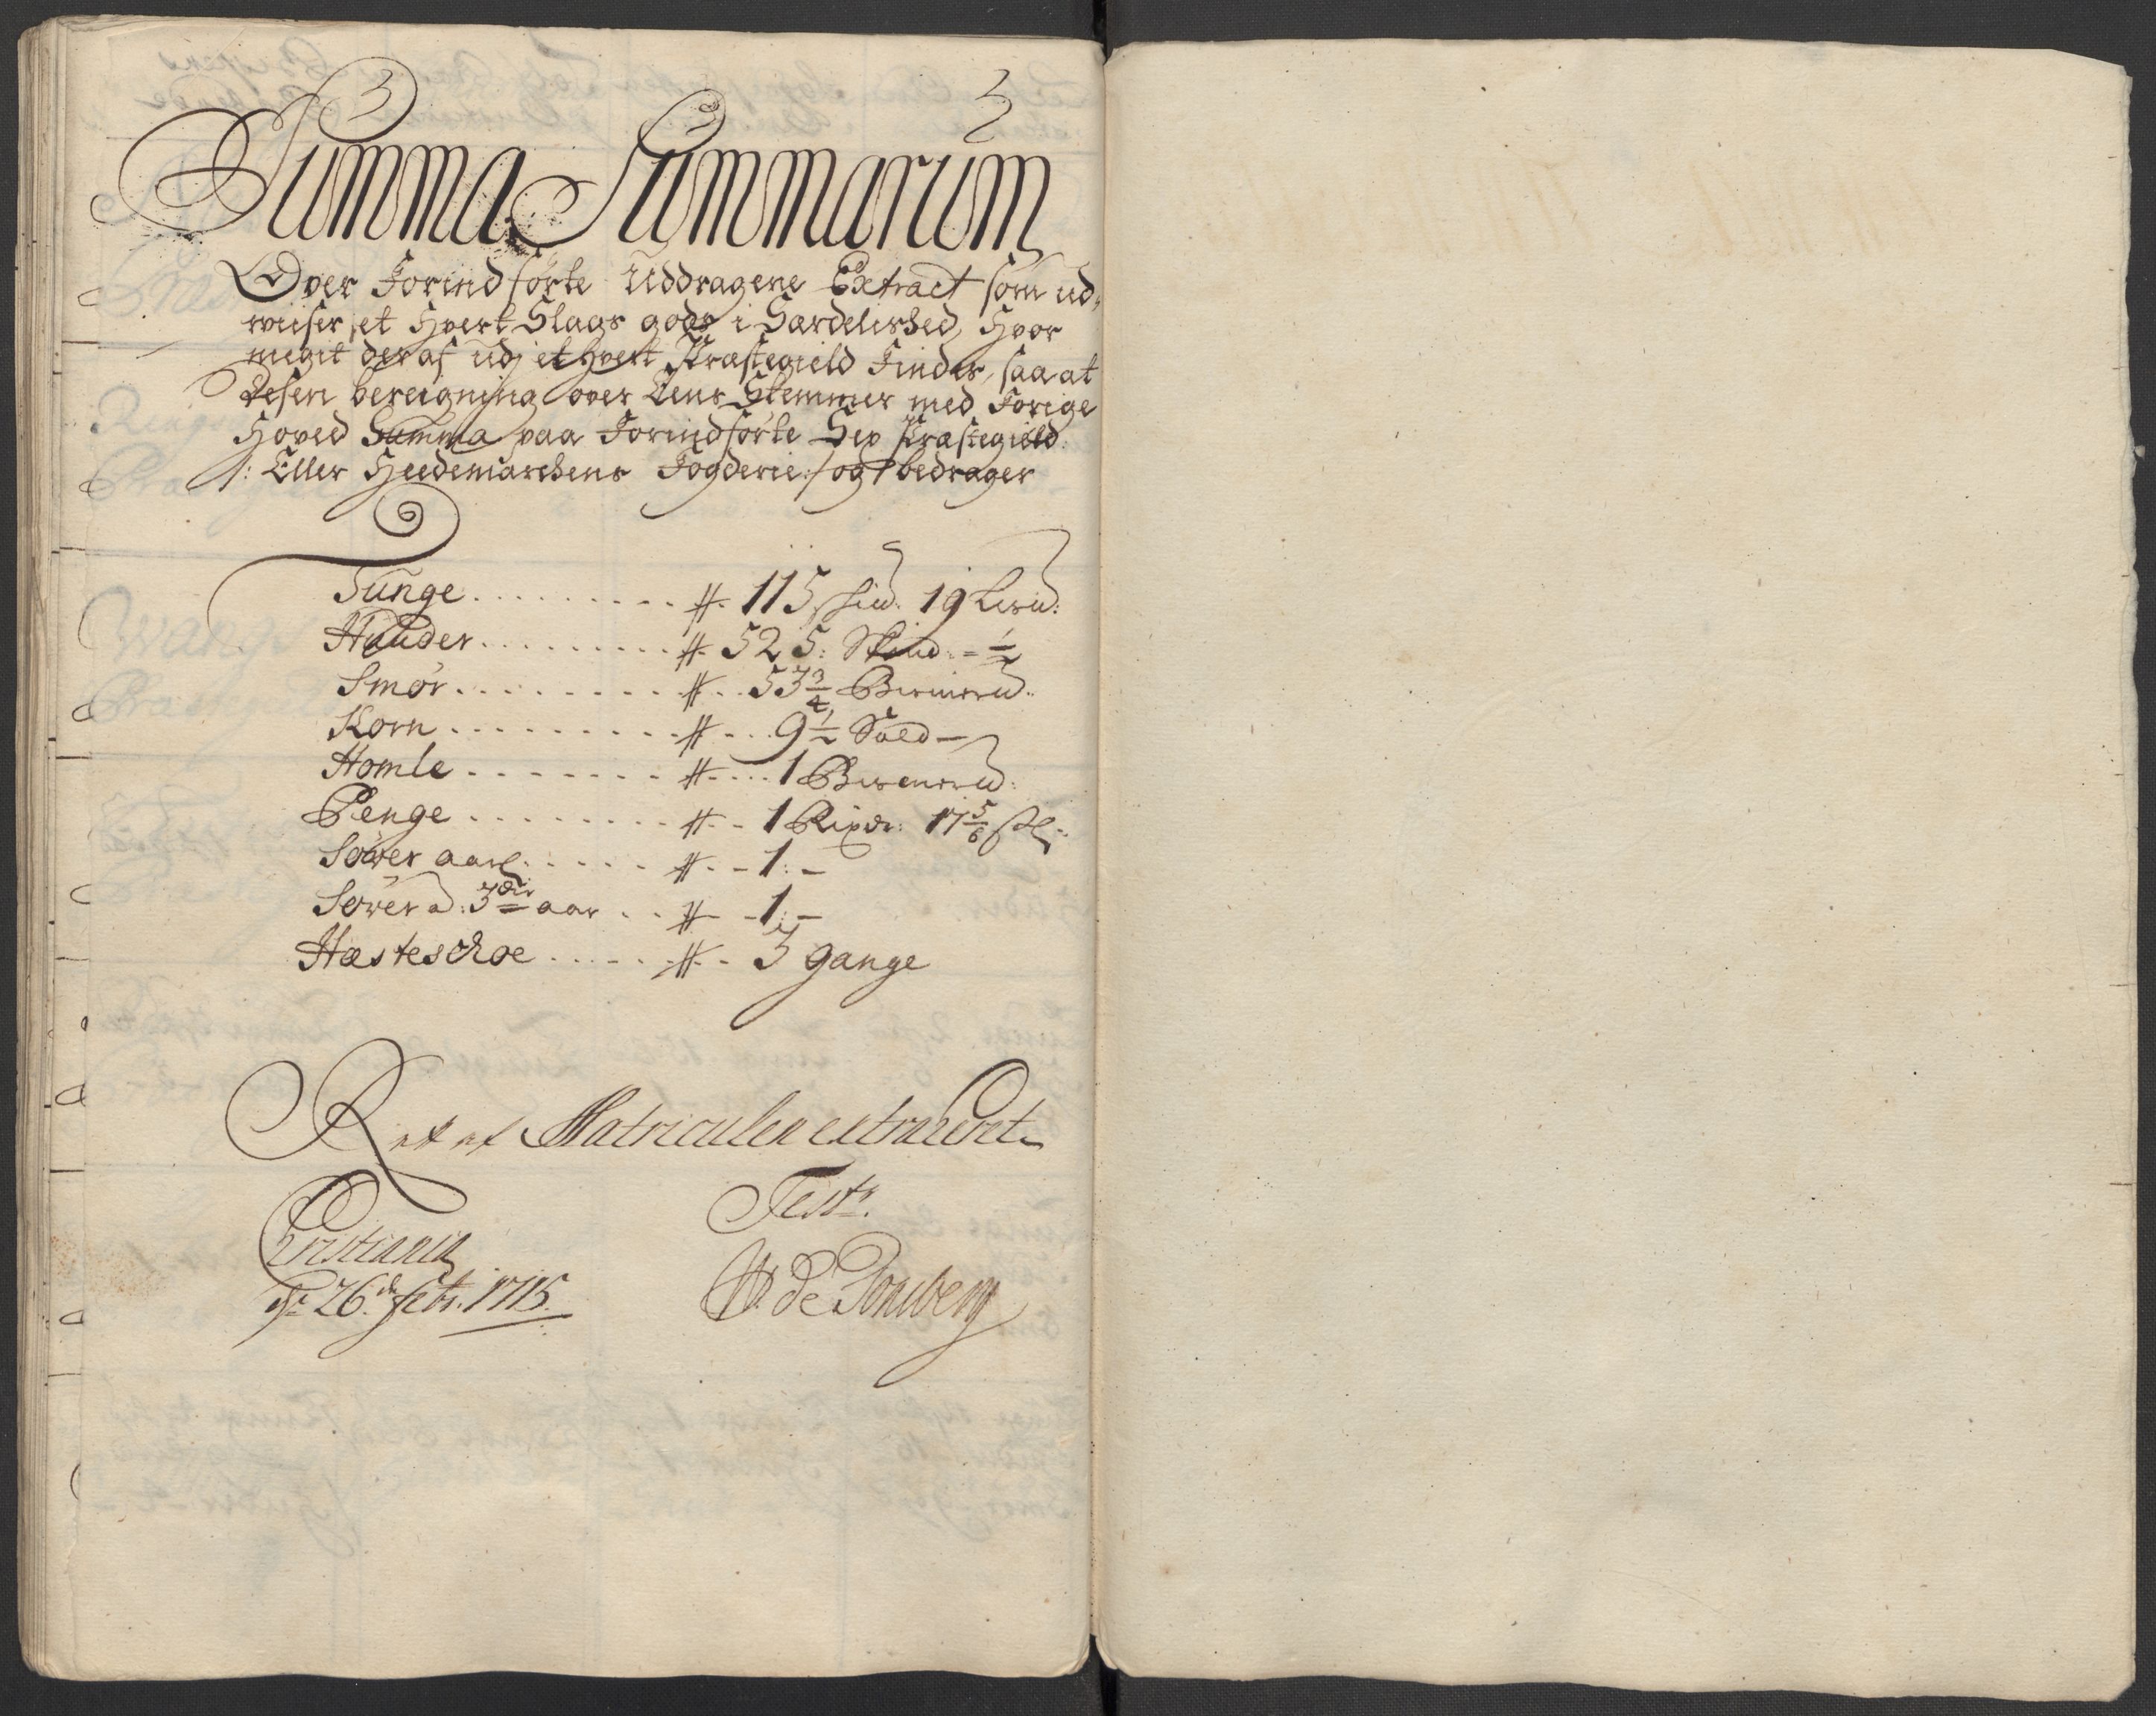 Summa Summarum
Over Forindførte Uddragene Extract som ud,
wiiser, et Hvert Slags gods i Særdelished, Hvor
megit deraf udj et hvert Præstegield Findes, saa at
Desen bereigning over Eens Stemmer med Forige
Hoved Summa paa Forindførte Sex Præstegield:
/: Eller Heedemarchens Fogderie :/ og bedrager
Tunge . . . . . . . . . # 115 skpd. 19 Lispd:
Huuder . . . . . . . . . # 525: Skind: - ½
Smör . . . . . . . . # . . 53¾ Bismerpd:
Korn . . . . . . . . . # - . . 9½ Sold -
Homle . . . . . . . # . . . . 1 Bismerpd:
Penge . . . . . . . . # . - 1 Rixdr: 17⅚ sk:
Söwer aarl. . . . . . # . - 1: -
Söwer d: 3die aar . . # - - 1: -
Hæsteschoe . . . . . # . - 3 gange
Ret af Matriculen extraheret
Test:
Christiania
d. 26. de Febr. 1715.
W. de Tonsberg